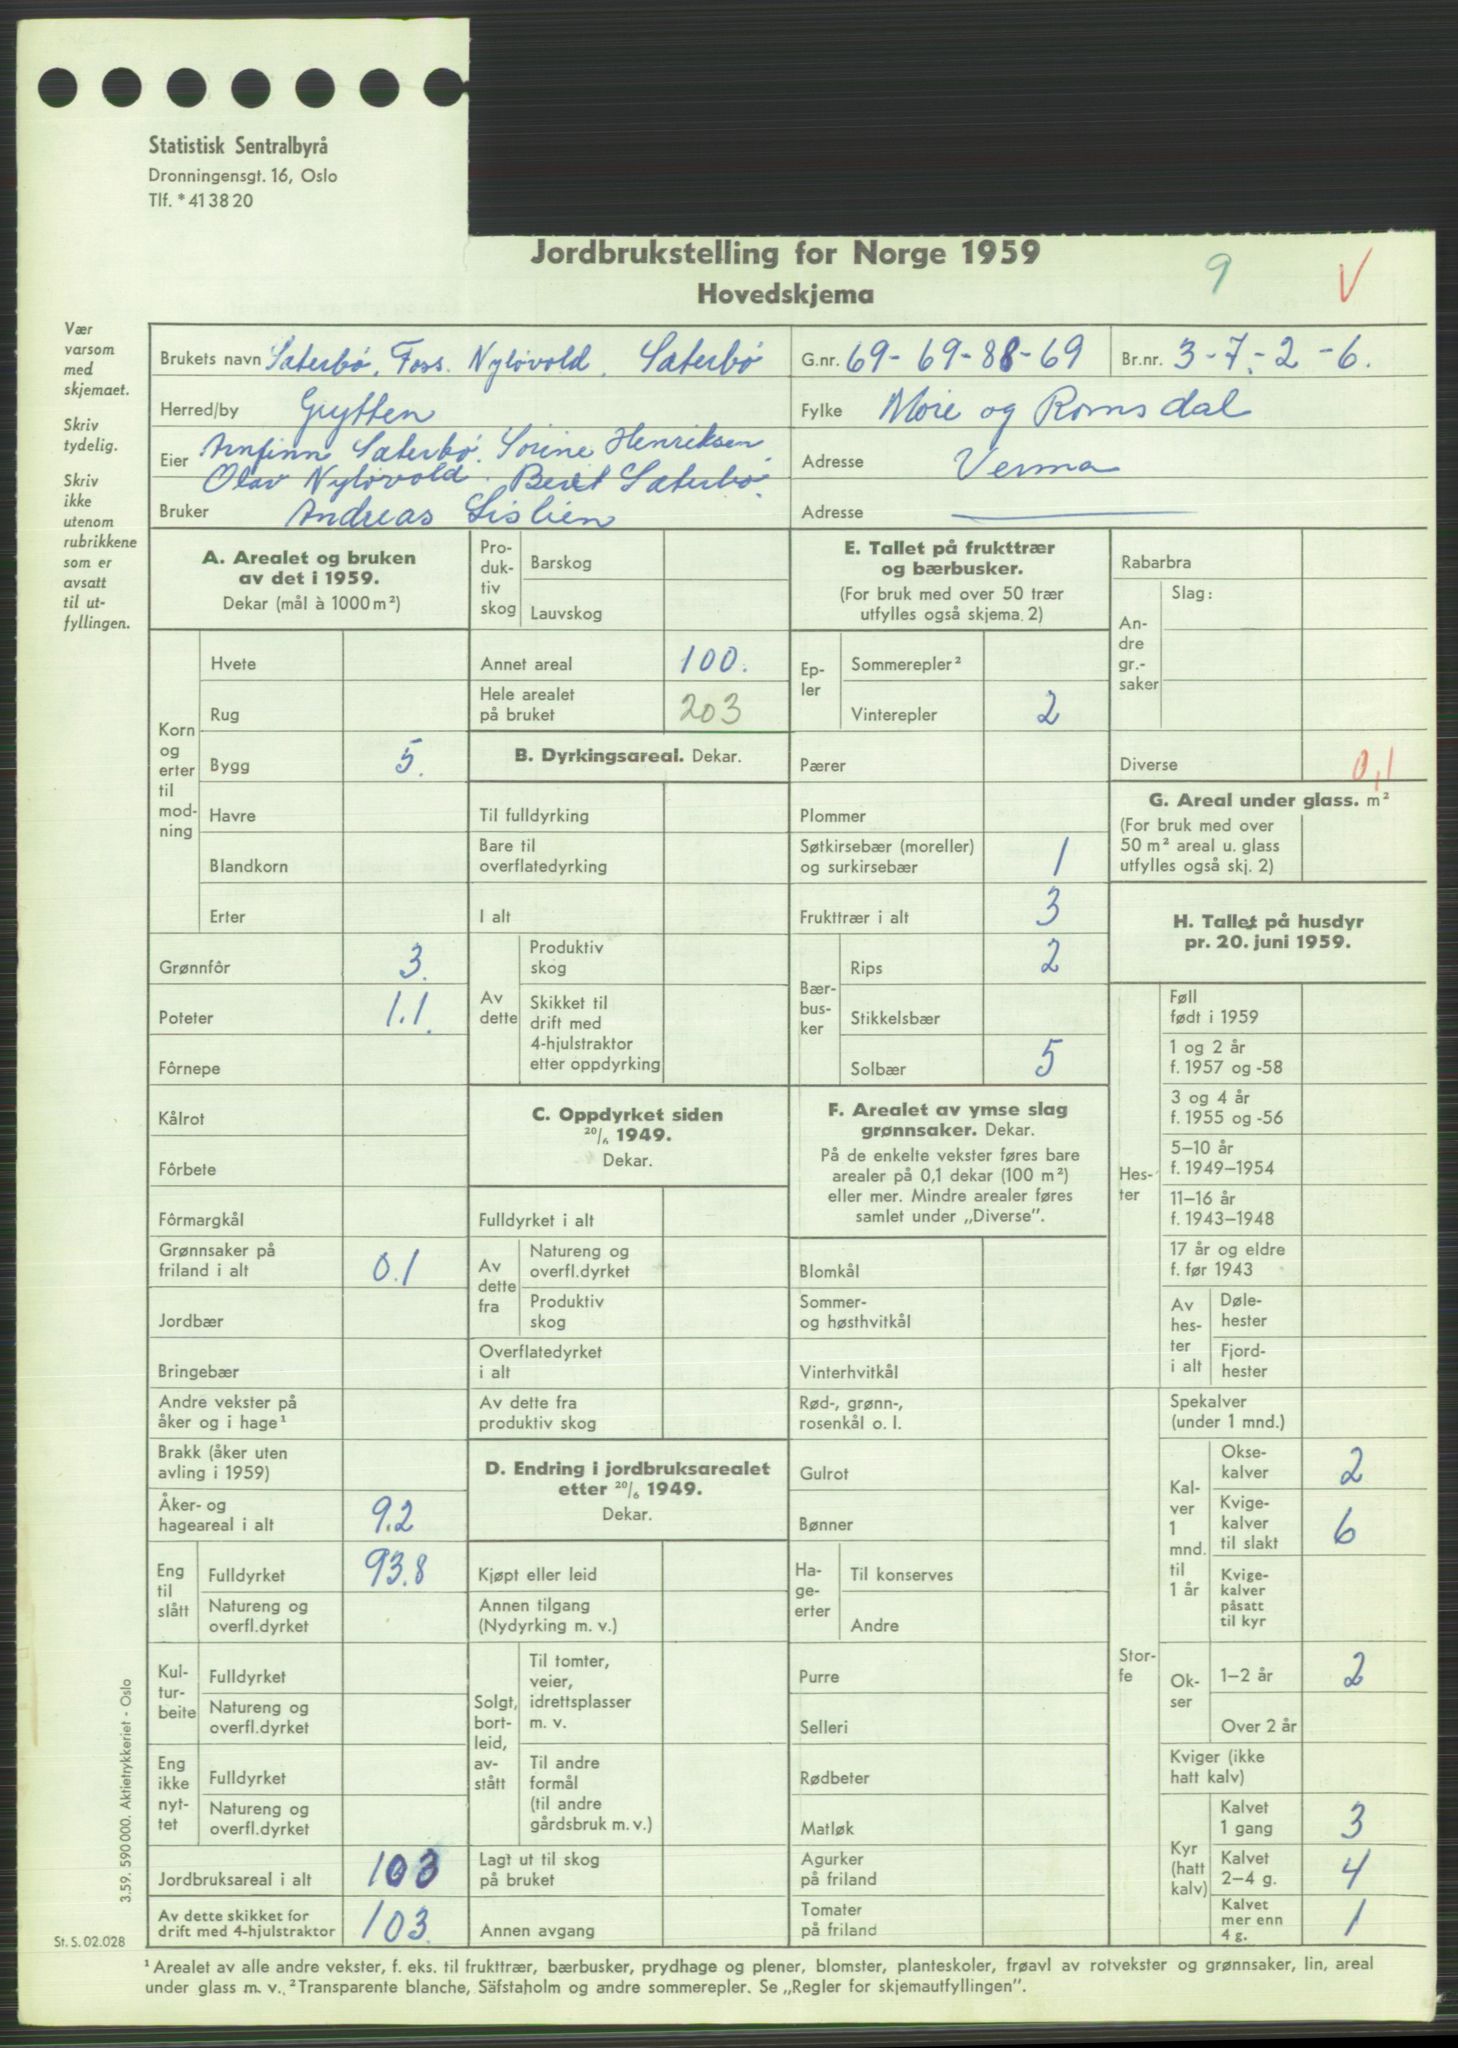 Statistisk Sentralbyrå
Dronningensgt. 16, Oslo
Tlf. *41 38 20
Jordbrukstelling for Norge 1959
Hovedskjema
9
V
Vær
varsom
med
skjemaet.
Skriv
tydelig.
Skriv
ikke
utenom
rubrikkene
som er
avsatt
til ut-
fyllingen.
Brukets navn Sæterbø. Foss. Nyløvold. Sæterbø
G.nr. 69-69-88-69
Br.nr. 3-7-2-6.
Herred/by Grytten
Fylke Møre og Romsdal
Eier Arnfinn Sæterbø. Sorine Henriksen.
Olav Nyløvold. Berit Sæterbø.
Adresse Verma
Bruker Andreas Lislien
Adresse
A. Arealet og bruken
av det i 1959.
Dekar (mål à 1000 m²)
Korn
og
erter
til
mod-
ning
Hvete
Rug
Bygg 5.
Havre
Blandkorn
Erter
Grønnfôr 3.
Poteter 1.1.
Fôrnepe
Kålrot
Fôrbete
Fôrmargkål
Grønnsaker på
friland i alt 0.1
Jordbær
Bringebær
Andre vekster på
åker og i hage¹
Brakk (åker uten
avling i 1959)
Åker- og
hageareal i alt 9.2
Eng
til
slått
Fulldyrket 93.8
Natureng og
overfl.dyrket
Kul-
tur-
beite
Fulldyrket
Natureng og
overfl.dyrket
Eng
ikke
nyt-
tet
Fulldyrket
Natureng og
overfl.dyrket
Jordbruksareal i alt 103
Av dette skikket for
drift med 4-hjulstraktor 103.
Pro-
duk-
tiv
skog
Barskog
Lauvskog
Annet areal 100.
Hele arealet
på bruket 203
B. Dyrkingsareal. Dekar.
Til fulldyrking
Bare til
overflatedyrking
I alt
Av
dette
Produktiv
skog
Skikket til
drift med
4-hjulstraktor
etter oppdyrking
C. Oppdyrket siden
20/6 1949.
Dekar.
Fulldyrket i alt
Av
dette
fra
Natureng og
overfl.dyrket
Produktiv
skog
Overflatedyrket
i alt
Av dette fra
produktiv skog
D. Endring i jordbruksarealet
etter 20/6 1949.
Dekar.
Kjøpt eller leid
Annen tilgang
(Nydyrking m. v.)
Solgt,
bort-
leid,
av-
stått
Til tomter,
veier,
idrettsplasser
m. v.
Til andre
formål
(til andre
gårdsbruk m. v.)
Lagt ut til skog
på bruket
Annen avgang
E. Tallet på frukttrær
og bærbusker.
(For bruk med over 50 trær
utfylles også skjema 2)
Ep-
ler
Sommerepler²
Vinterepler 2
Pærer
Plommer
Søtkirsebær (moreller)
og surkirsebær 1
Frukttrær i alt 3
Bær-
bus-
ker
Rips 2
Stikkelsbær
Solbær 5
F. Arealet av ymse slag
grønnsaker. Dekar.
På de enkelte vekster føres bare
arealer på 0,1 dekar (100 m²)
eller mer. Mindre arealer føres
samlet under „Diverse”.
Blomkål
Sommer-
og høsthvitkål
Vinterhvitkål
Rød-, grønn-,
rosenkål o. l.
Gulrot
Bønner
Ha-
ge-
erter
Til konserves
Andre
Purre
Selleri
Rødbeter
Matløk
Agurker
på friland
Tomater
på friland
Rabarbra
An-
dre
gr.-
saker
Slag:
Diverse 0,1
G. Areal under glass. m²
(For bruk med over
50 m² areal u. glass
utfylles også skj. 2)
H. Tallet på husdyr
pr. 20. juni 1959.
Hes-
ter
Føll
født i 1959
1 og 2 år
f. 1957 og -58
3 og 4 år
f. 1955 og -56
5–10 år
f. 1949–1954
11–16 år
f. 1943–1948
17 år og eldre
f. før 1943
Av
hes-
ter
i alt
Døle-
hester
Fjord-
hester
Stor-
fe
Spekalver
(under 1 mnd.)
Kal-
ver
1
mnd.
til
1 år
Okse-
kalver 2
Kvige-
kalver
til slakt 6
Kvige-
kalver
påsatt
til kyr
Ok-
ser
1–2 år 2
Over 2 år
Kviger (ikke
hatt kalv)
Kyr
(hatt
kalv)
Kalvet
1 gang 3
Kalvet
2–4 g. 4
Kalvet
mer enn
4 g. 1
3.59. 590 000. Aktietrykkeriet - Oslo
St. S. 02.028
¹ Arealet av alle andre vekster, f. eks. til frukttrær, bærbusker, prydhage og plener, blomster, planteskoler, frøavl av rotvekster og grønnsaker, lin, areal
under glass m. v. ² Transparente blanche, Säfstaholm og andre sommerepler. Se „Regler for skjemautfyllingen”.